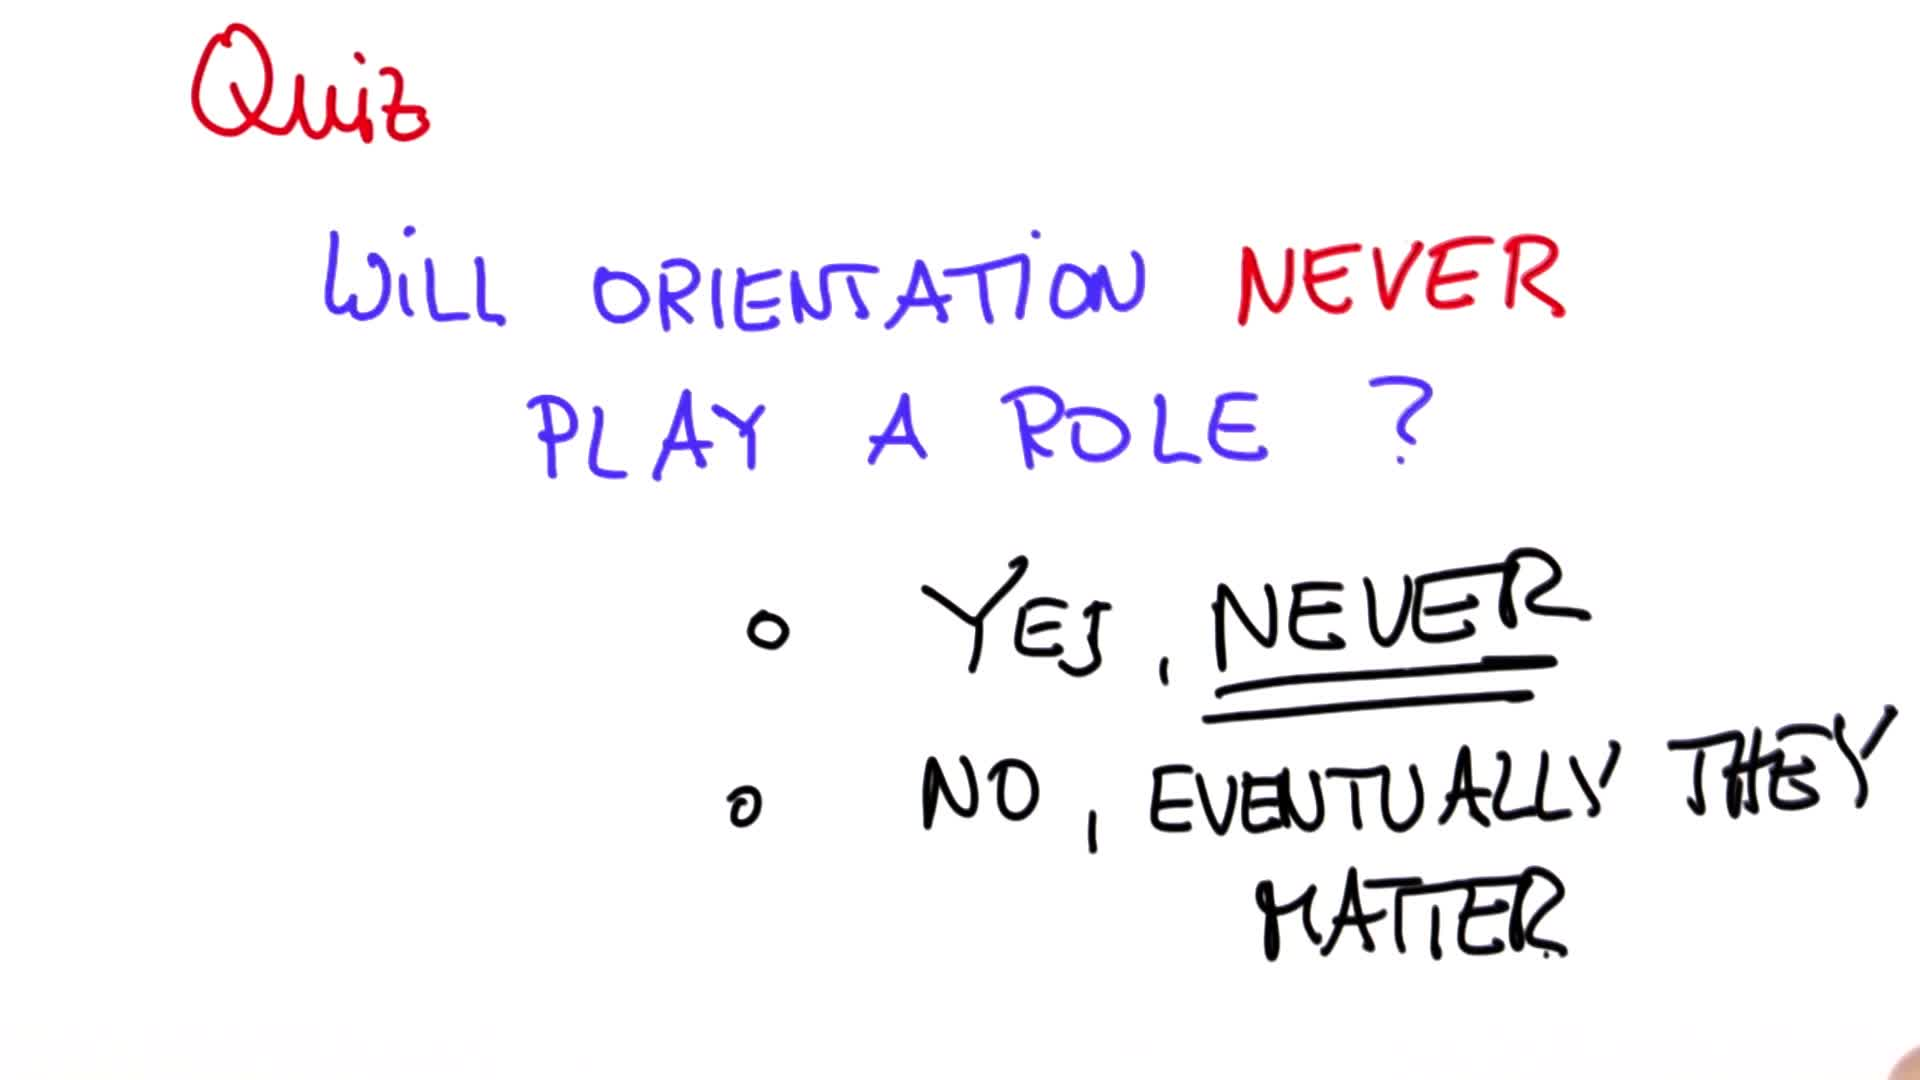 Quiz
WiLL ORIENTATiON NEVER
PLAY A ROLE ?
o YES, NEVER
o NO, EVENTUALLY THEY
MATTER